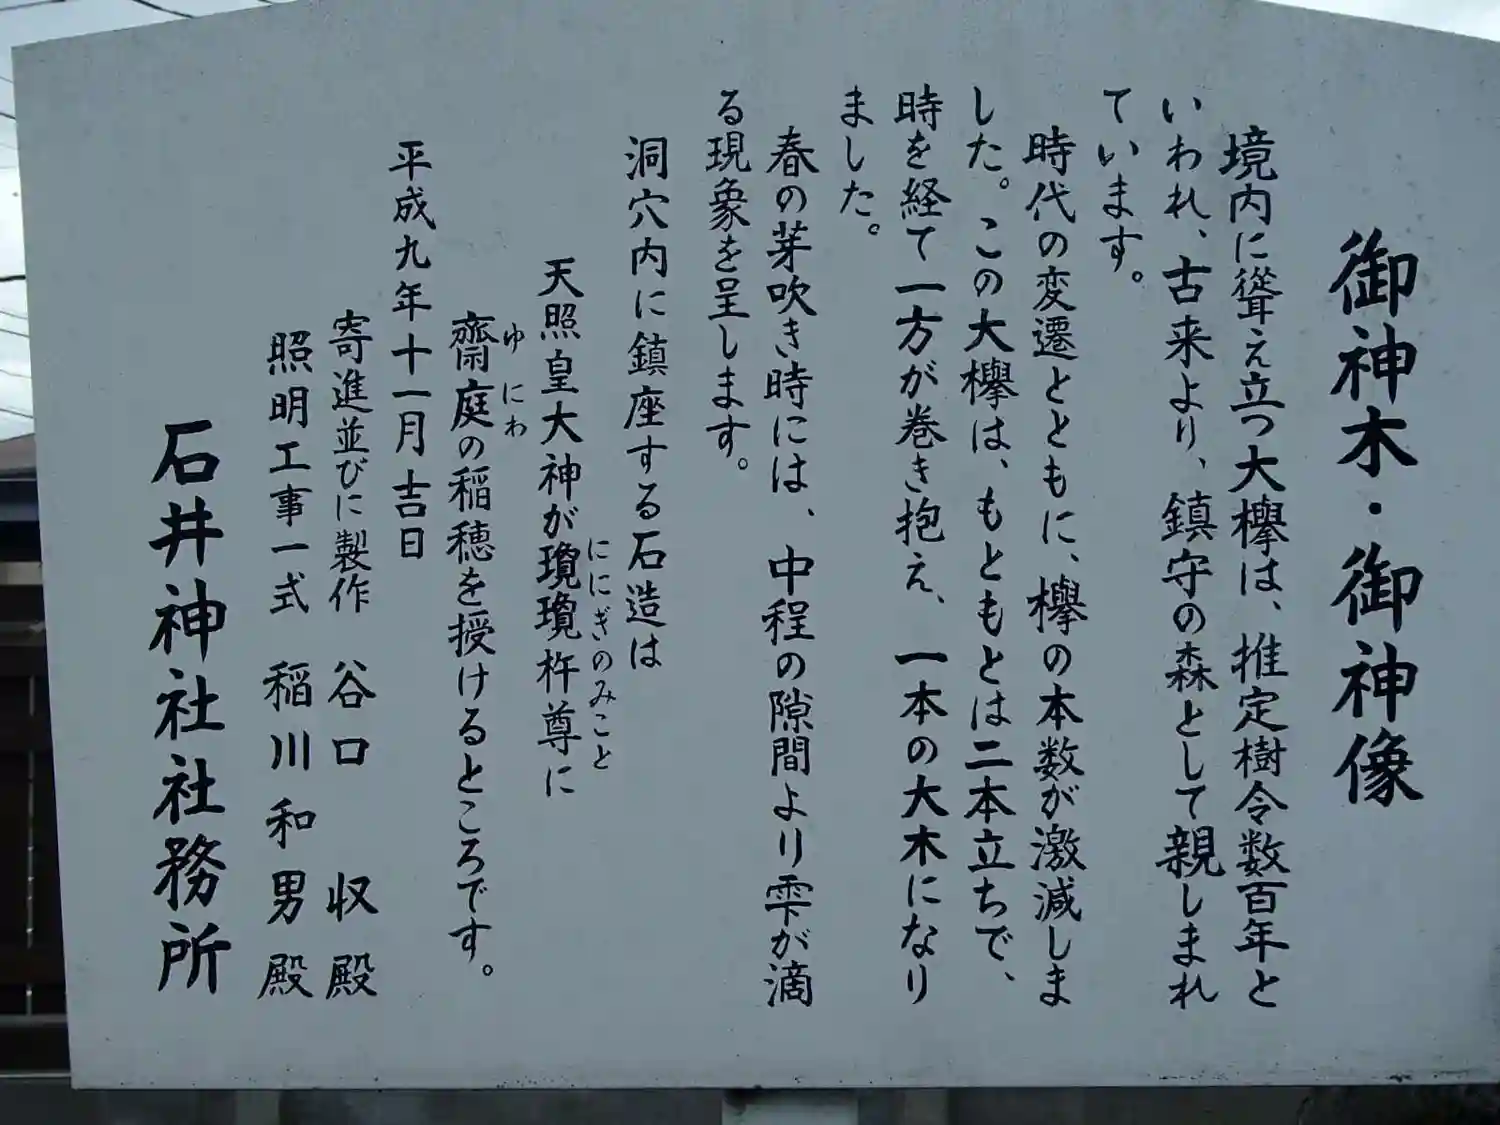 御神木・御神像
境内に聳え立つ大欅は、推定樹令数百年と
いわれ、古来より、鎮守の森として親しまれ
ています。
時代の変遷とともに、欅の本数が激減しま
した。この大欅は、もともとは二本立ちで、
時を経て一方が巻き抱え、一本の大木になり
ました。
春の芽吹き時には、中程の隙間より雫が滴
る現象を呈します。
洞穴内に鎮座する石造は
天照皇大神が瓊瓊杵尊に
ににぎのみこと
齋庭の稲穂を授けるところです。
ゆにわ
平成九年十一月吉日
寄進並びに製作 谷口 収殿
照明工事一式 稲川和男殿
石井神社社務所